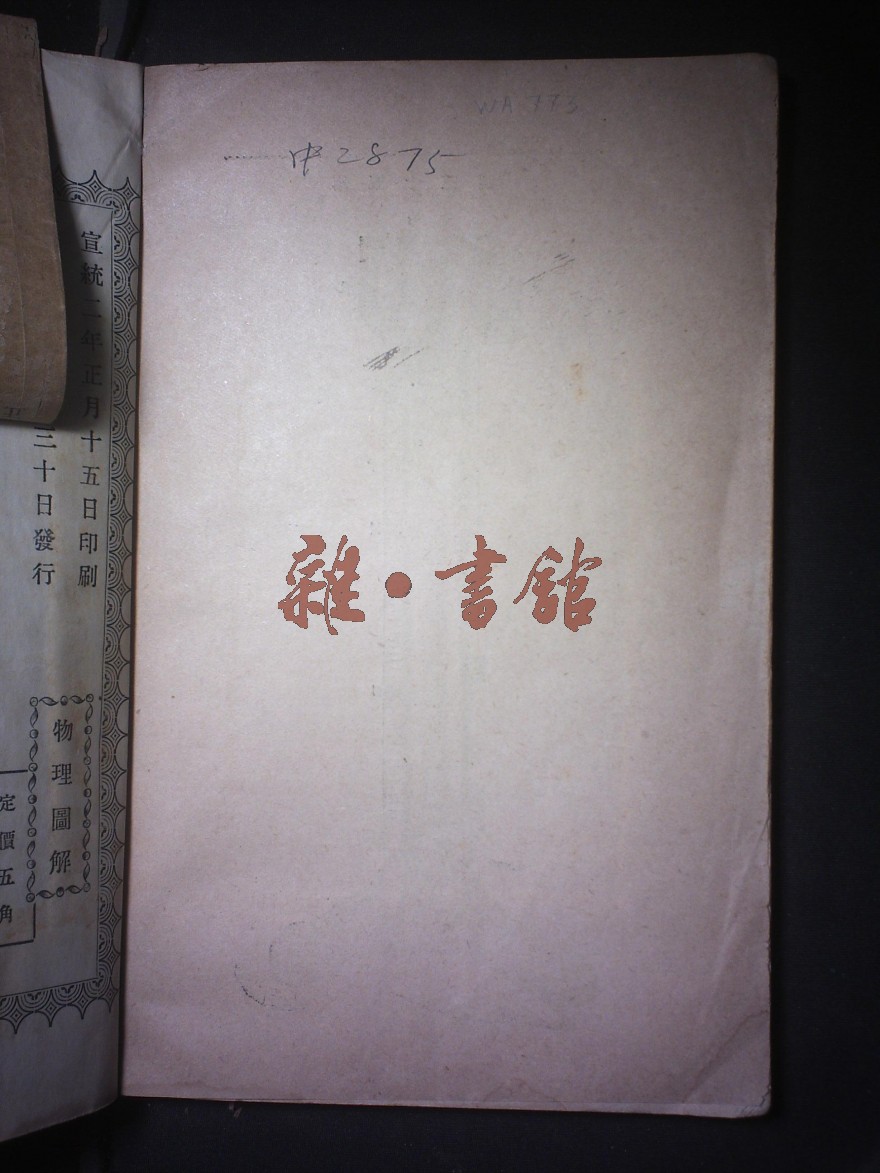 中2875
雜·書館
宣統二年正月十五日印刷
三十日發行
物理圖解
定價五角